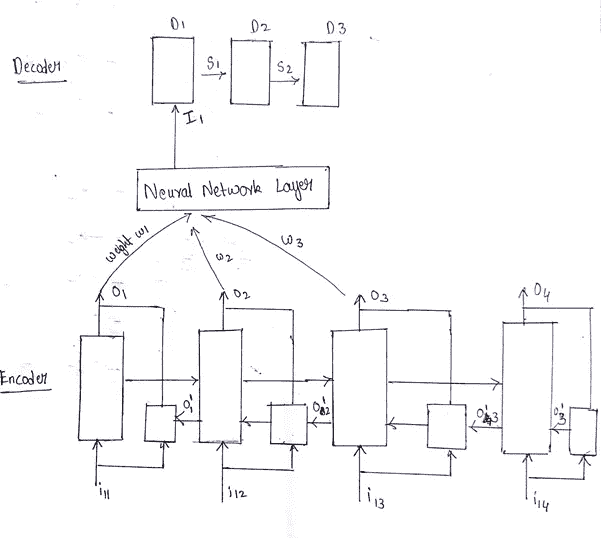 D1 D2 D3
Decoder
S1 S2
I1
Neural Network Layer
weight w1 w2 w3
O1 O2 O3 O4
Encoder
O'1 O'2 O'3 O'3
i11 i12 i13 i14